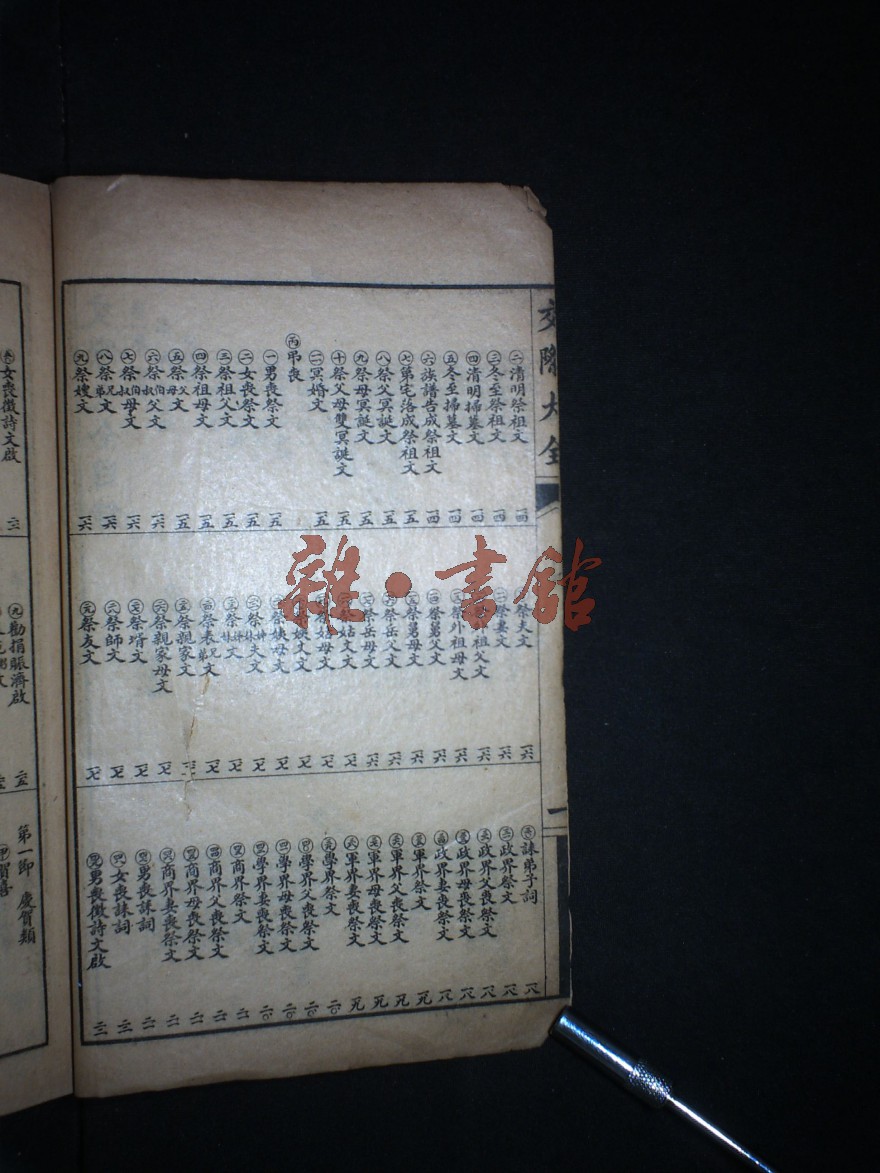 交際大全
㊁清明祭祖文 一四
㊂冬至祭祖文 一四
㊃清明掃墓文 一四
㊄冬至掃墓文 一四
㊅族譜告成祭祖文 一四
㊆第宅落成祭祖文 一五
㊇祭父冥誕文 一五
㊈祭母冥誕文 一五
㊉祭父母雙冥誕文 一五
冥婚文 一五
㊅弔喪
㊀男喪祭文 一五
㊁女喪祭文 一五
㊂祭祖父文 一五
㊃祭祖母文 一五
㊄祭父母文 一五
㊅祭伯叔父文 一六
㊆祭伯叔母文 一六
㊇祭兄弟文 一六
㊈祭嫂文 一六
祭夫文 一六
祭妻文 一六
祖父文 一六
祭外祖母文 一六
祭舅父文 一六
祭舅母文 一六
祭岳父文 一六
祭岳母文 一六
祭姑文 一七
姑母文 一七
姨父文 一七
祭姨母文 一七
夫文 一七
祭文 一七
祭表兄弟文 一七
祭親家文 一七
祭親家母文 一七
祭壻文 一七
祭師文 一七
祭友文 一七
誄弟子詞 一八
政界祭文 一八
政界父喪祭文 一八
政界母喪祭文 一八
政界妻喪祭文 一八
軍界祭文 一九
軍界父喪祭文 一九
軍界母喪祭文 一九
軍界妻喪祭文 一九
學界祭文 二〇
學界父喪祭文 二〇
學界母喪祭文 二〇
學界妻喪祭文 二〇
商界祭文 二一
商界父喪祭文 二一
商界母喪祭文 二一
商界妻喪祭文 二一
男喪誄詞 二一
女喪誄詞 二二
男喪徵詩文啟 二二
一
女喪徵詩文啟
勸捐賑濟啟 二五
第一節 慶賀類
賀喜
雜·書館